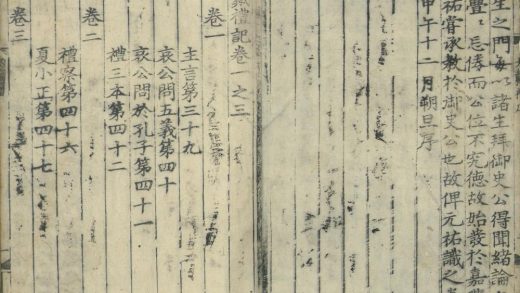 生之門每以諸生拜御史公得聞緒論
忘倦而公位不究德故始發於嘉
祐嘗承教於御史公也故俾元祐識之
甲午十二月朔旦序
戴禮記卷一之三
卷一
主言第三十九
哀公問五義第四十
哀公問於孔子第四十一
禮三本第四十二
卷二
禮察第四十六
夏小正第四十七
卷三